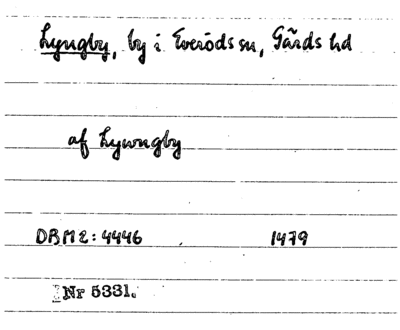 Lyngby, by i Everöds sn, Gärds hd
af Lywngby
DRM 2: 4446 1479
Nr 5331.